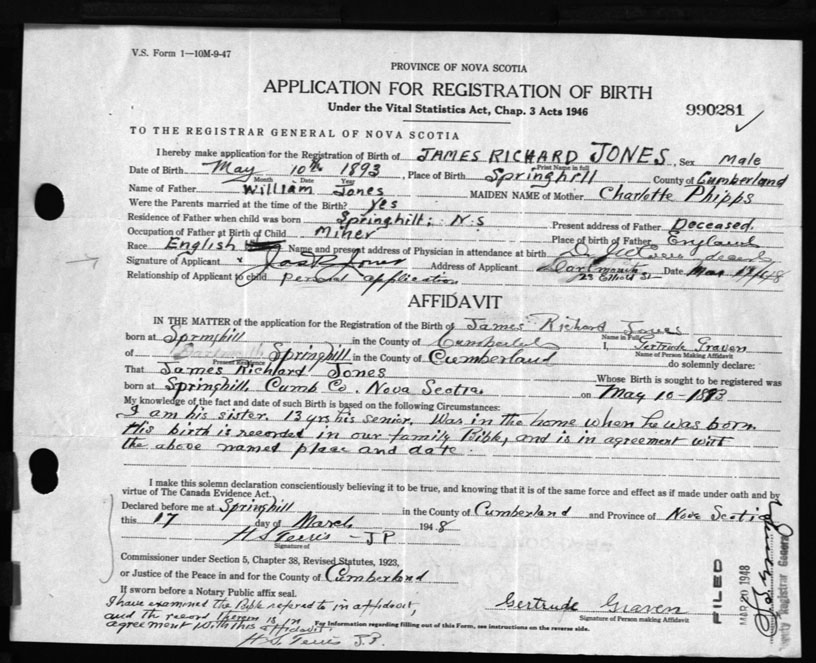 V.S. Form 1—10M-9-47
PROVINCE OF NOVA SCOTIA
APPLICATION FOR REGISTRATION OF BIRTH
Under the Vital Statistics Act, Chap. 3 Acts 1946
990281
TO THE REGISTRAR GENERAL OF NOVA SCOTIA
I hereby make application for the Registration of Birth of JAMES RICHARD JONES, Sex Male
Print Name in full
Date of Birth May 10th 1893, Place of Birth Springhill County of Cumberland
Month Date Year
Name of Father William Jones MAIDEN NAME of Mother Charlotte Phipps
Were the Parents married at the time of the Birth? Yes
Residence of Father when child was born Springhill, N.S Present address of Father Deceased.
Occupation of Father at Birth of Child Miner Place of birth of Father England
Race English Name and present address of Physician in attendance at birth
Signature of Applicant x Jas R Jones Address of Applicant Dartmouth Date Mar
Relationship of Applicant to child personal application 23 St
AFFIDAVIT
IN THE MATTER of the application for the Registration of the Birth of James Richard Jones
Name in Full
born at Springhill in the County of Cumberland I, Gertrude Graven
Name of Person Making Affidavit
of Springhill in the County of Cumberland do solemnly declare:
Present Residence
That James Richard Jones Whose Birth is sought to be registered was
born at Springhill, Cumb Co. Nova Scotia. on May 10-1893
My knowledge of the fact and date of such Birth is based on the following Circumstances:
I am his sister. 13 yrs his senior. Was in the home when he was born.
His birth is recorded in our family Bible, and is in agreement with
the above named place and date.
I make this solemn declaration conscientiously believing it to be true, and knowing that it is of the same force and effect as if made under oath and by
virtue of The Canada Evidence Act.
Declared before me at Springhill in the County of Cumberland and Province of Nova Scotia
this 17 day of March 1948
H S Terris - J P
Signature of
Commissioner under Section 5, Chapter 38, Revised Statutes, 1923,
or Justice of the Peace in and for the County of Cumberland
If sworn before a Notary Public affix seal.
I have examined the Bible refered to in affidavit,
and the record thereon is in
agreement with this affidavit.
H. S. Terris J.P.
Gertrude Graven
Signature of Person making Affidavit
For Information regarding filling out of this Form, see instructions on the reverse side.
FILED
MAR 20 1948
Deputy Registrar General